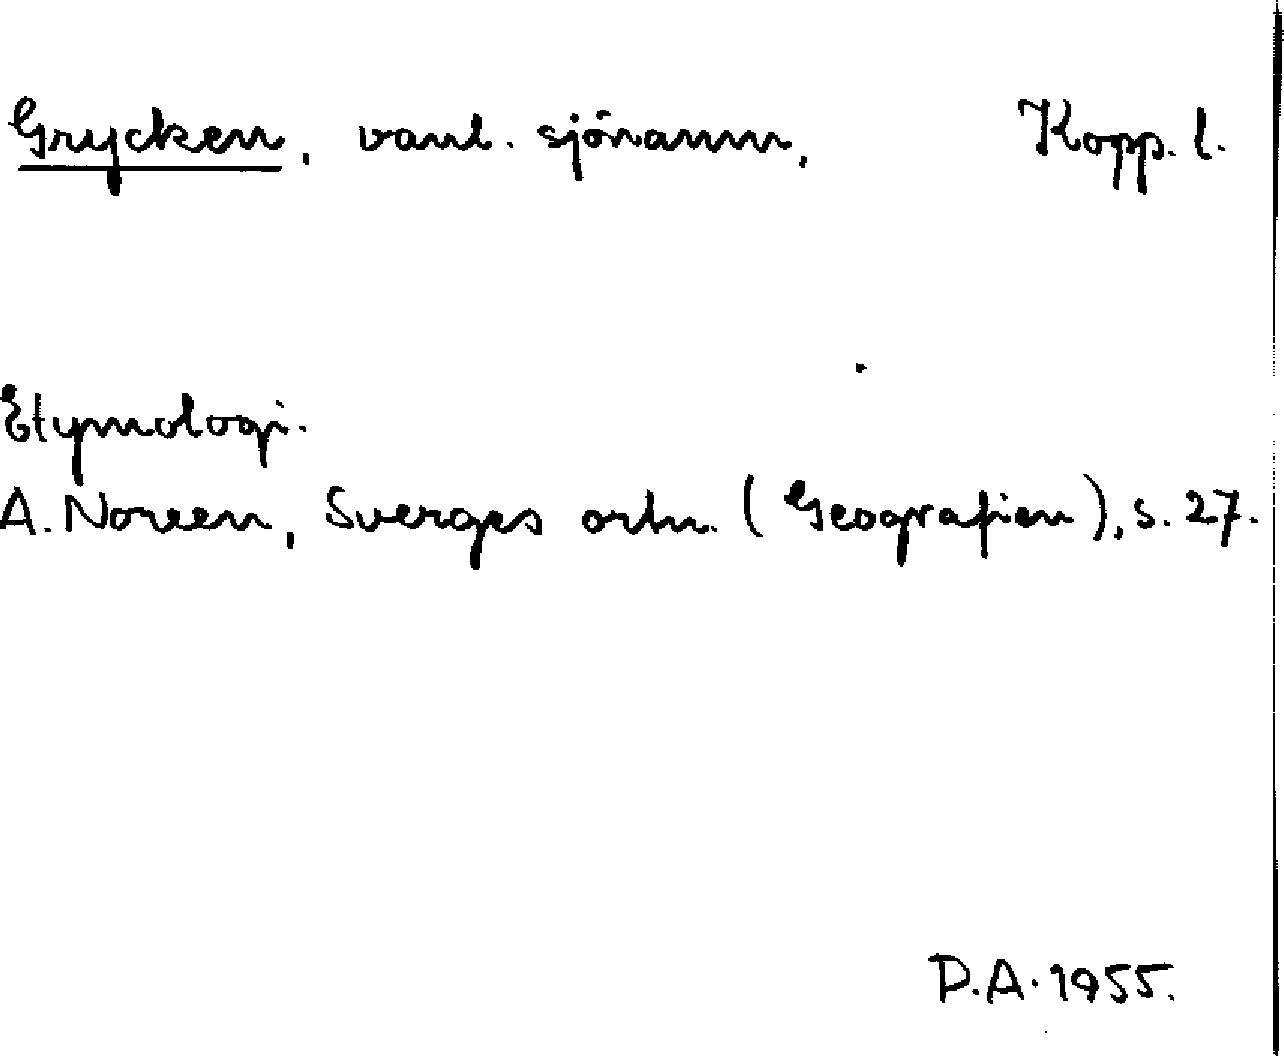 Grycken, vanl. sjönamn, Kopp. l.
Etymologi.
A. Noreen, Sverges ortn. (Geografien), s. 27.
D.A. 1955.